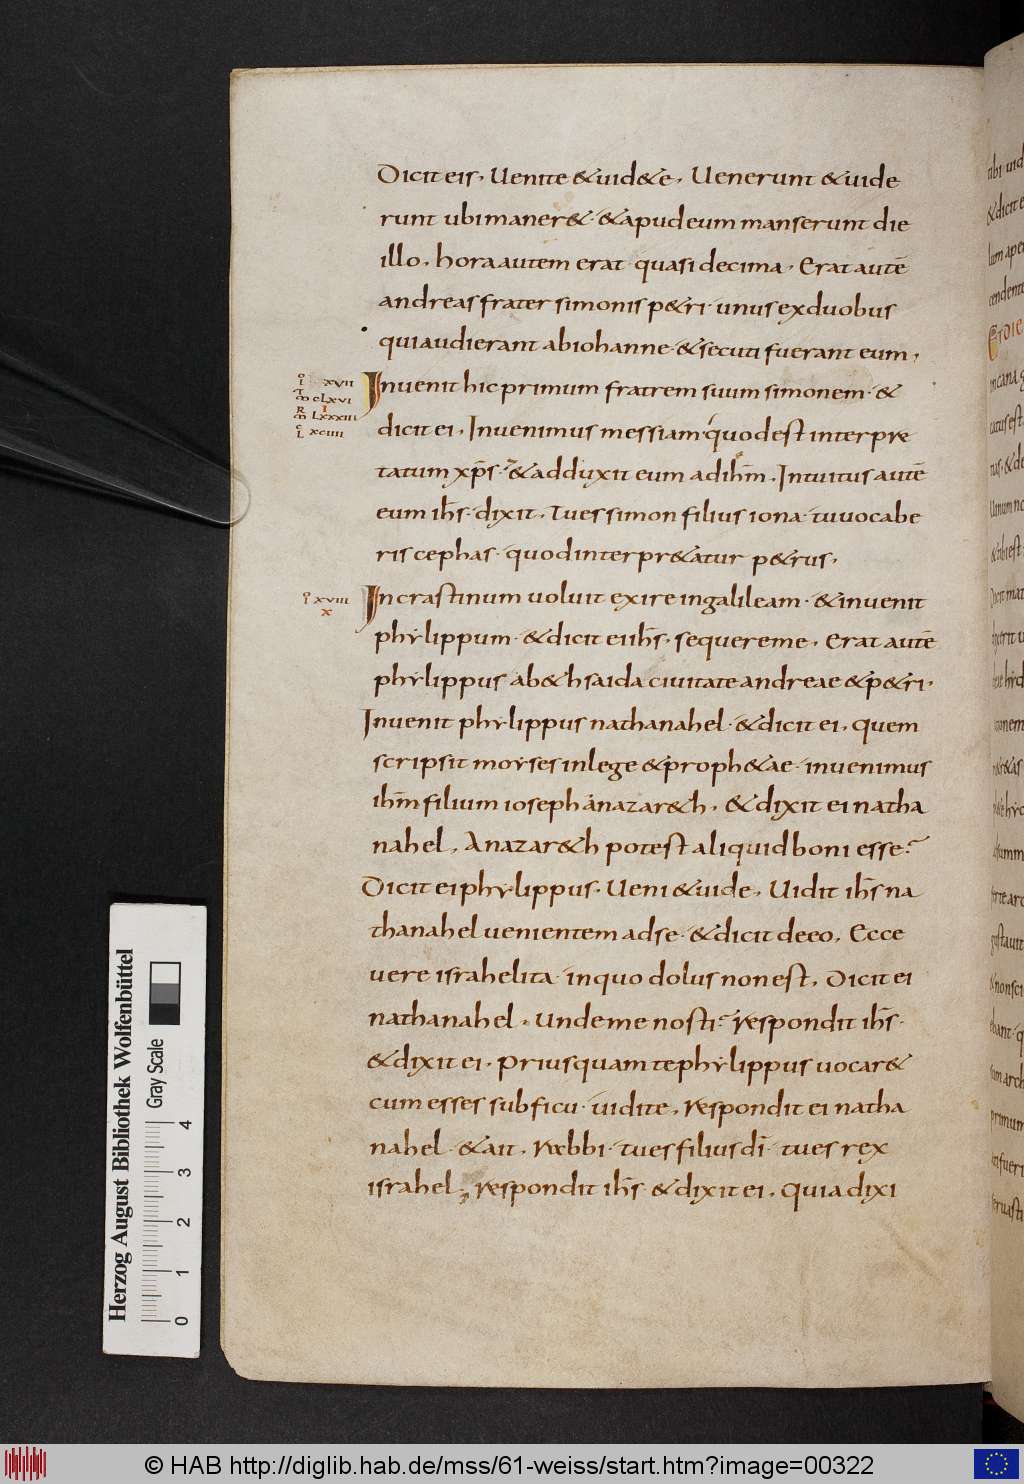 Dicit eis. Uenite &uid&e. Uenerunt &uide
runt ubi maner&. &apud eum manserunt die
illo. hora autem erat quasi decima. Erat autē
andreas frater simonis p&ri. unus ex duobus
qui audierant ab iohanne. &secuti fuerant eum.
Inuenit hic primum fratrem suum simonem. &
dicit ei. Inuenimus messiam. quod est interpre
tatum xp̄s. &adduxit eum ad ihm̄. Intuitus autē
eum ihs̄. dixit. Tu es simon filius iona. tu uocabe
ris cephas. quod interpr&atur p&rus.
In crastinum uoluit exire in galileam. &inuenit
phylippum. &dicit ei ihs̄. sequere me. Erat autē
phylippus ab&hsaida ciuitate andreae &p&ri.
Inuenit phylippus nathanahel. &dicit ei. quem
scripsit moyses in lege &proph&ae. inuenimus
ihm̄ filium ioseph a nazar&h. &dixit ei natha
nahel. A nazar&h potest aliquid boni esse?
Dicit ei phylippus. Ueni &uide. Uidit ihs̄ na
thanahel uenientem ad se. &dicit de eo. Ecce
uere israhelita. in quo dolus non est. Dicit ei
nathanahel. unde me nosti? Respondit ihs̄.
&dixit ei. priusquam te phylippus uocar&
cum esses sub ficu. uidi te. Respondit ei natha
nahel. &ait. Rabbi. tu es filius dī. tu es rex
israhel. Respondit ihs̄ &dixit ei. Quia dixi
XVII
CLXVI
I
LXXXIII
XCIIII
XVIII
X
Herzog August Bibliothek Wolfenbüttel
Gray Scale
0 1 2 3 4
© HAB http://diglib.hab.de/mss/61-weiss/start.htm?image=00322